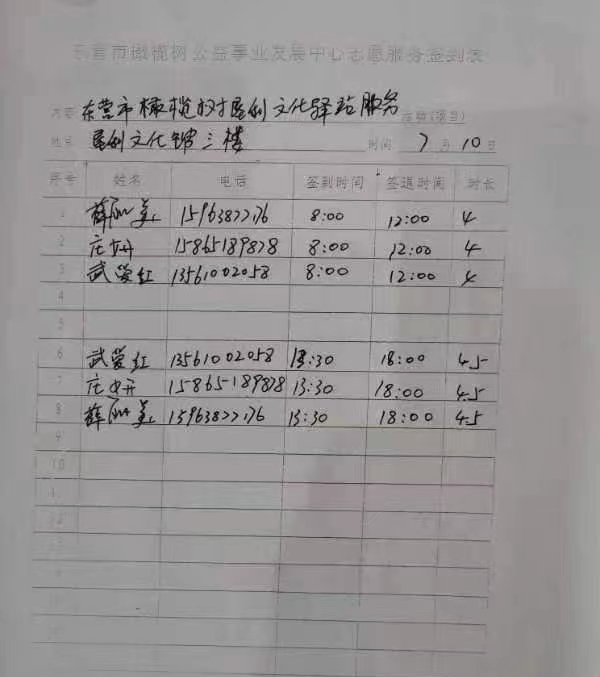 东营市橄榄树公益事业发展中心志愿服务签到表
内容 东营市橄榄树吕剧文化驿站服务 活动(项目)
地点 吕剧文化馆三楼 时间 7月10日
序号 姓名 电话 签到时间 签退时间 时长
1 薛丽美 15963822276 8:00 12:00 4
2 庄妍 15865189878 8:00 12:00 4
3 武爱红 13561002058 8:00 12:00 4
4
5
6 武爱红 13561002058 13:30 18:00 4.5
7 庄妍 15865189878 13:30 18:00 4.5
8 薛丽美 15963822276 13:30 18:00 4.5
9
10